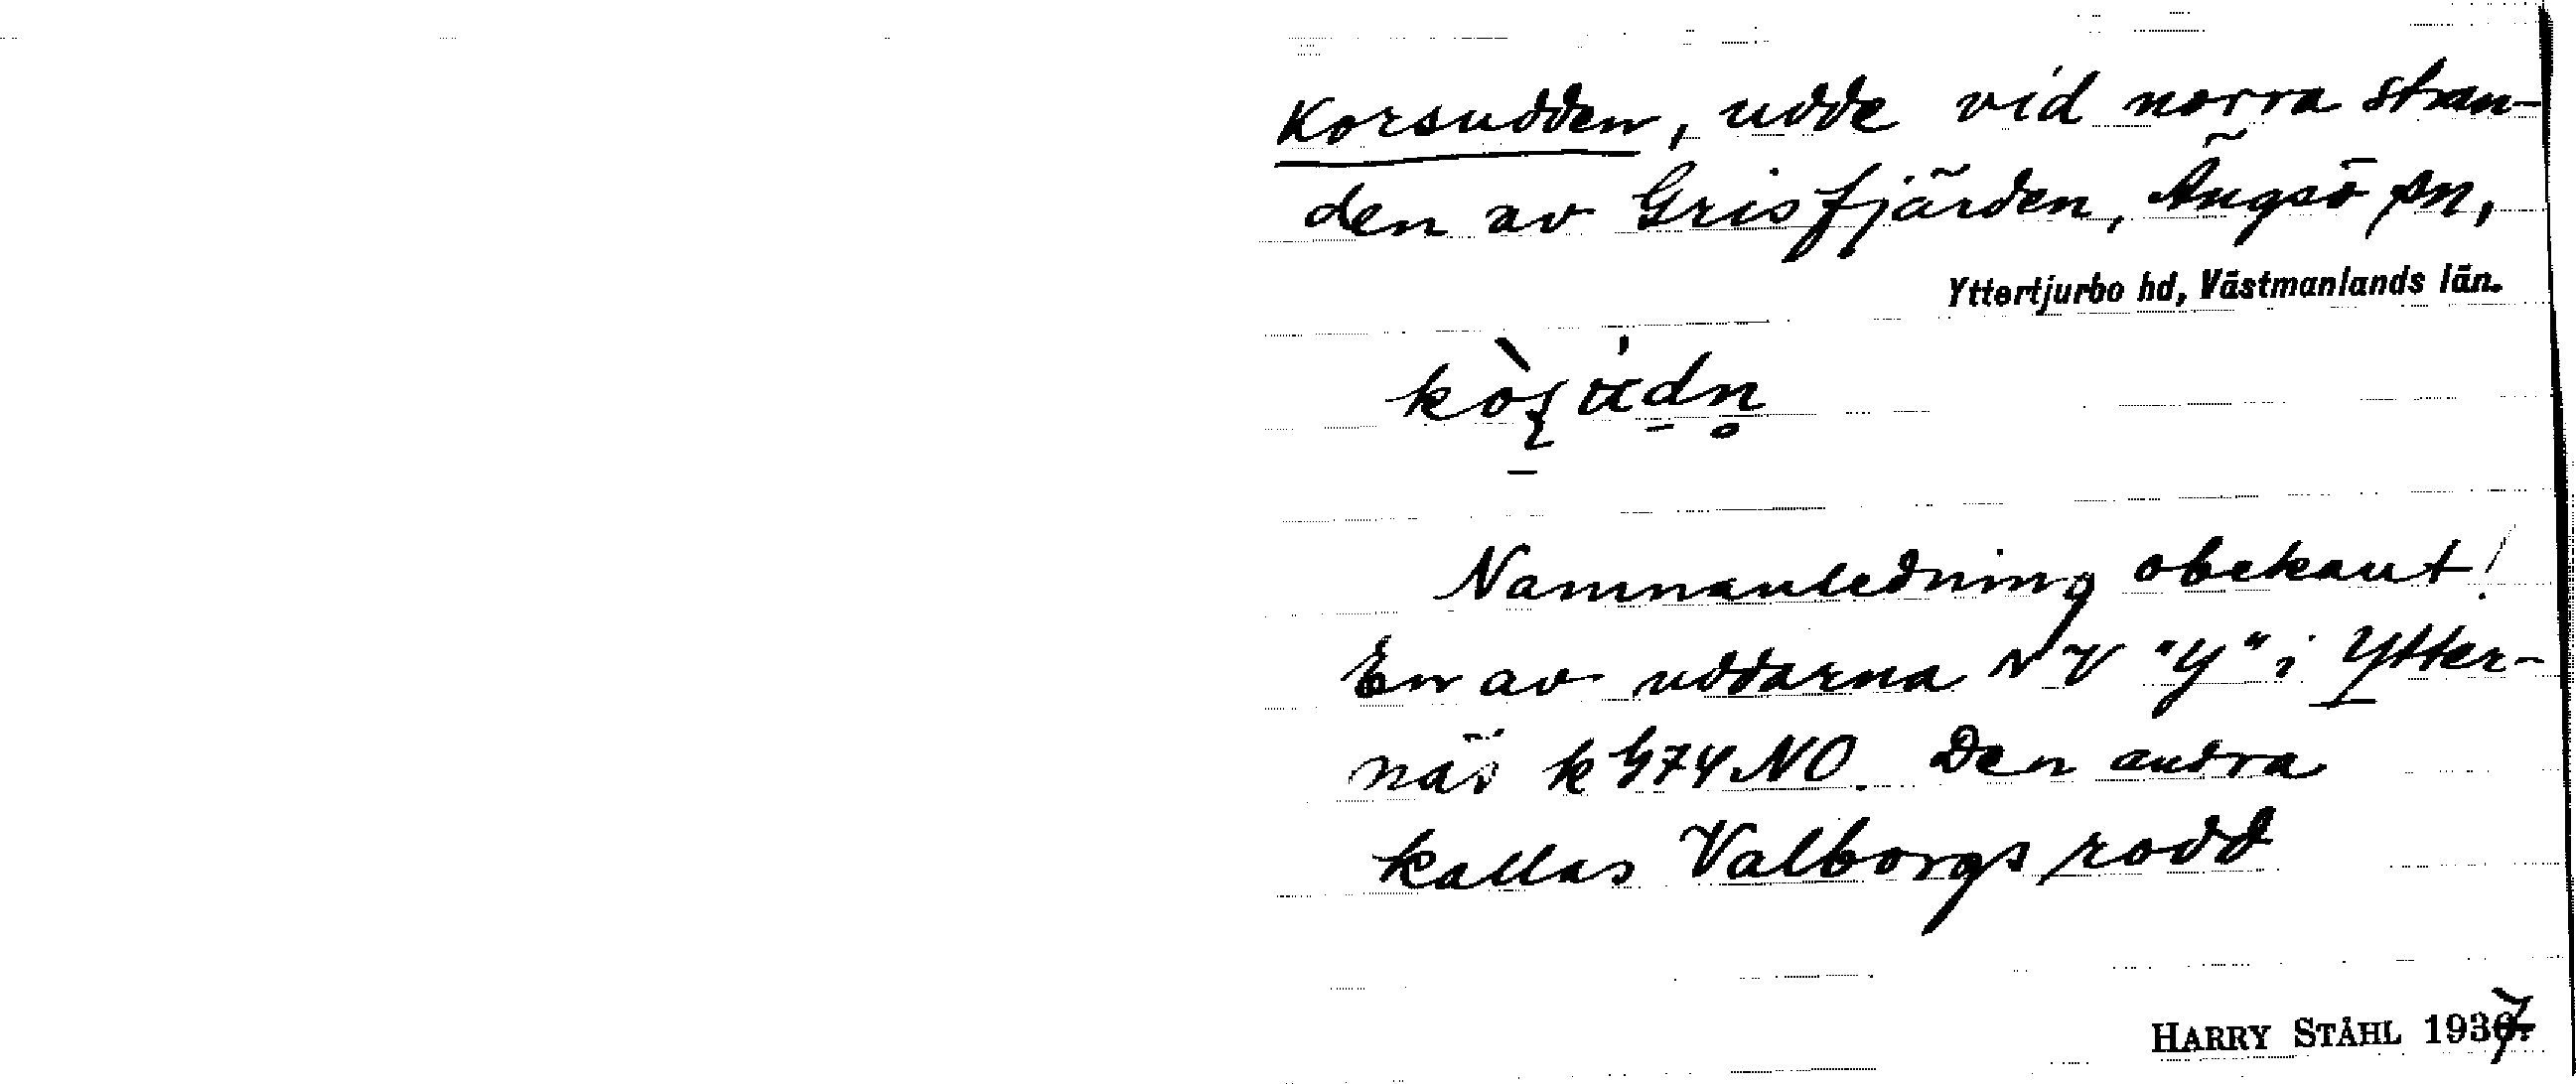 Korsudden, udde vid norra stran-
den av Grisfjärden, Ängsö sn,
Yttertjurbo hd, Västmanlands län.
Namnanledning obekant!
En av uddarna NV "Y" i Ytter-
näs k G74 NO. Den andra
kallas Valborgs rodd
HARRY STÅHL 1937